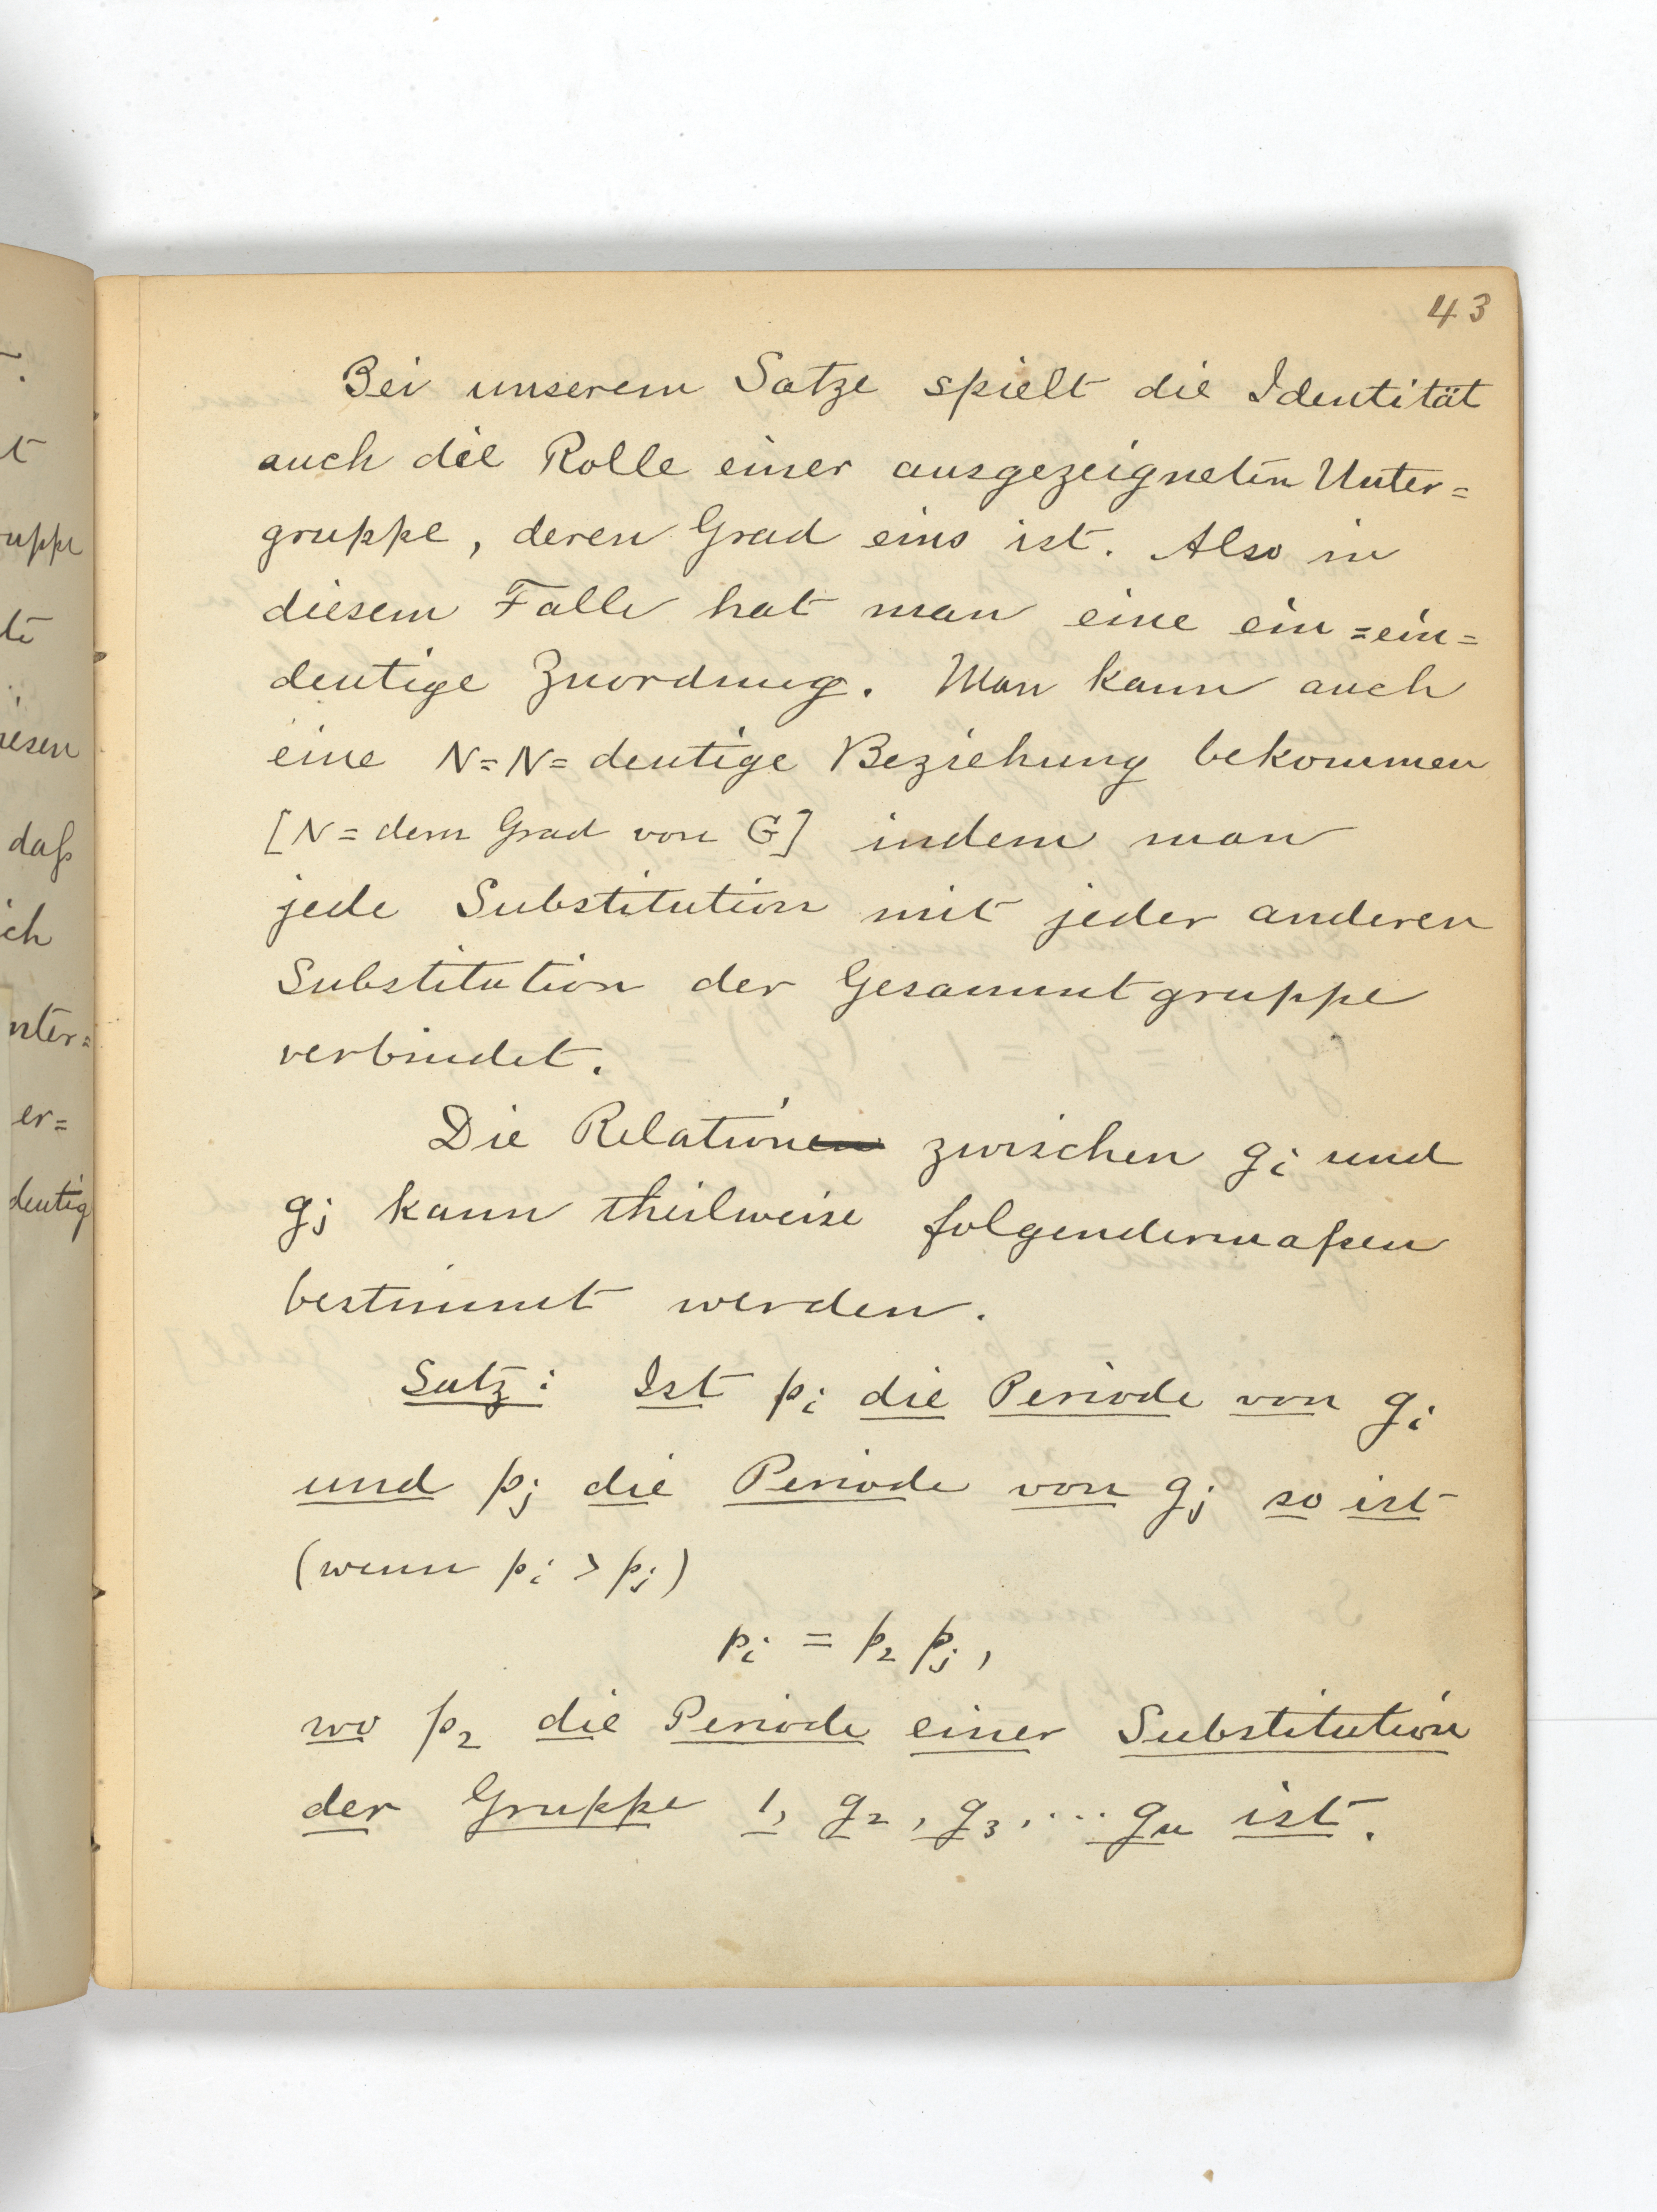 43
Bei unserem Satze spielt die Identität
auch die Rolle einer ausgezeigneten Unter=
gruppe, deren Grad eins ist. Also in
diesem Falle hat man eine ein=ein=
deutige Zuordnung. Man kann auch
eine N=N=deutige Beziehung bekommen
[N = dem Grad von G] indem man
jede Substitution mit jeder anderen
Substitution der Gesammtgruppe
verbindet.
Die Relation zwischen gi und
gj kann theilweise folgendermaßen
bestimmt werden.
Satz: Ist pi die Periode von gi
und pj die Periode von gj so ist
(wenn pi > pj)
pi = p2 pj,
wo p2 die Periode einer Substitution
der Gruppe 1, g2, g3, ... gn ist.
uppe
iesen
daß
ich
nter=
er=
deutig